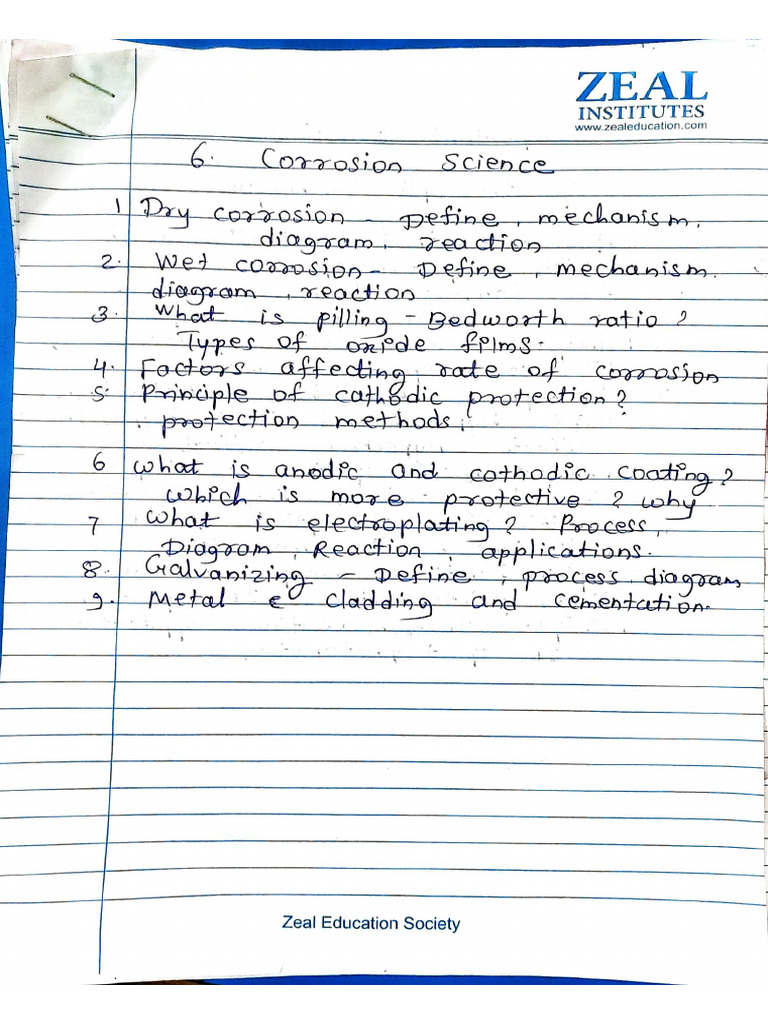 ZEAL
INSTITUTES
www.zealeducation.com
6. Corrosion Science
1 Dry corrosion - Define, mechanism,
diagram, reaction
2. Wet corrosion - Define, mechanism.
diagram, reaction
3. What is pilling - Bedworth ratio?
Types of oxide films.
4. Factors affecting rate of corrosion
5. Principle of cathodic protection?
protection methods.
6 What is anodic and cathodic coating?
Which is more protective? why
7 What is electroplating? Process,
Diagram, Reaction, applications.
8. Galvanizing - Define, process diagram
9. Metal e cladding and cementation.
Zeal Education Society